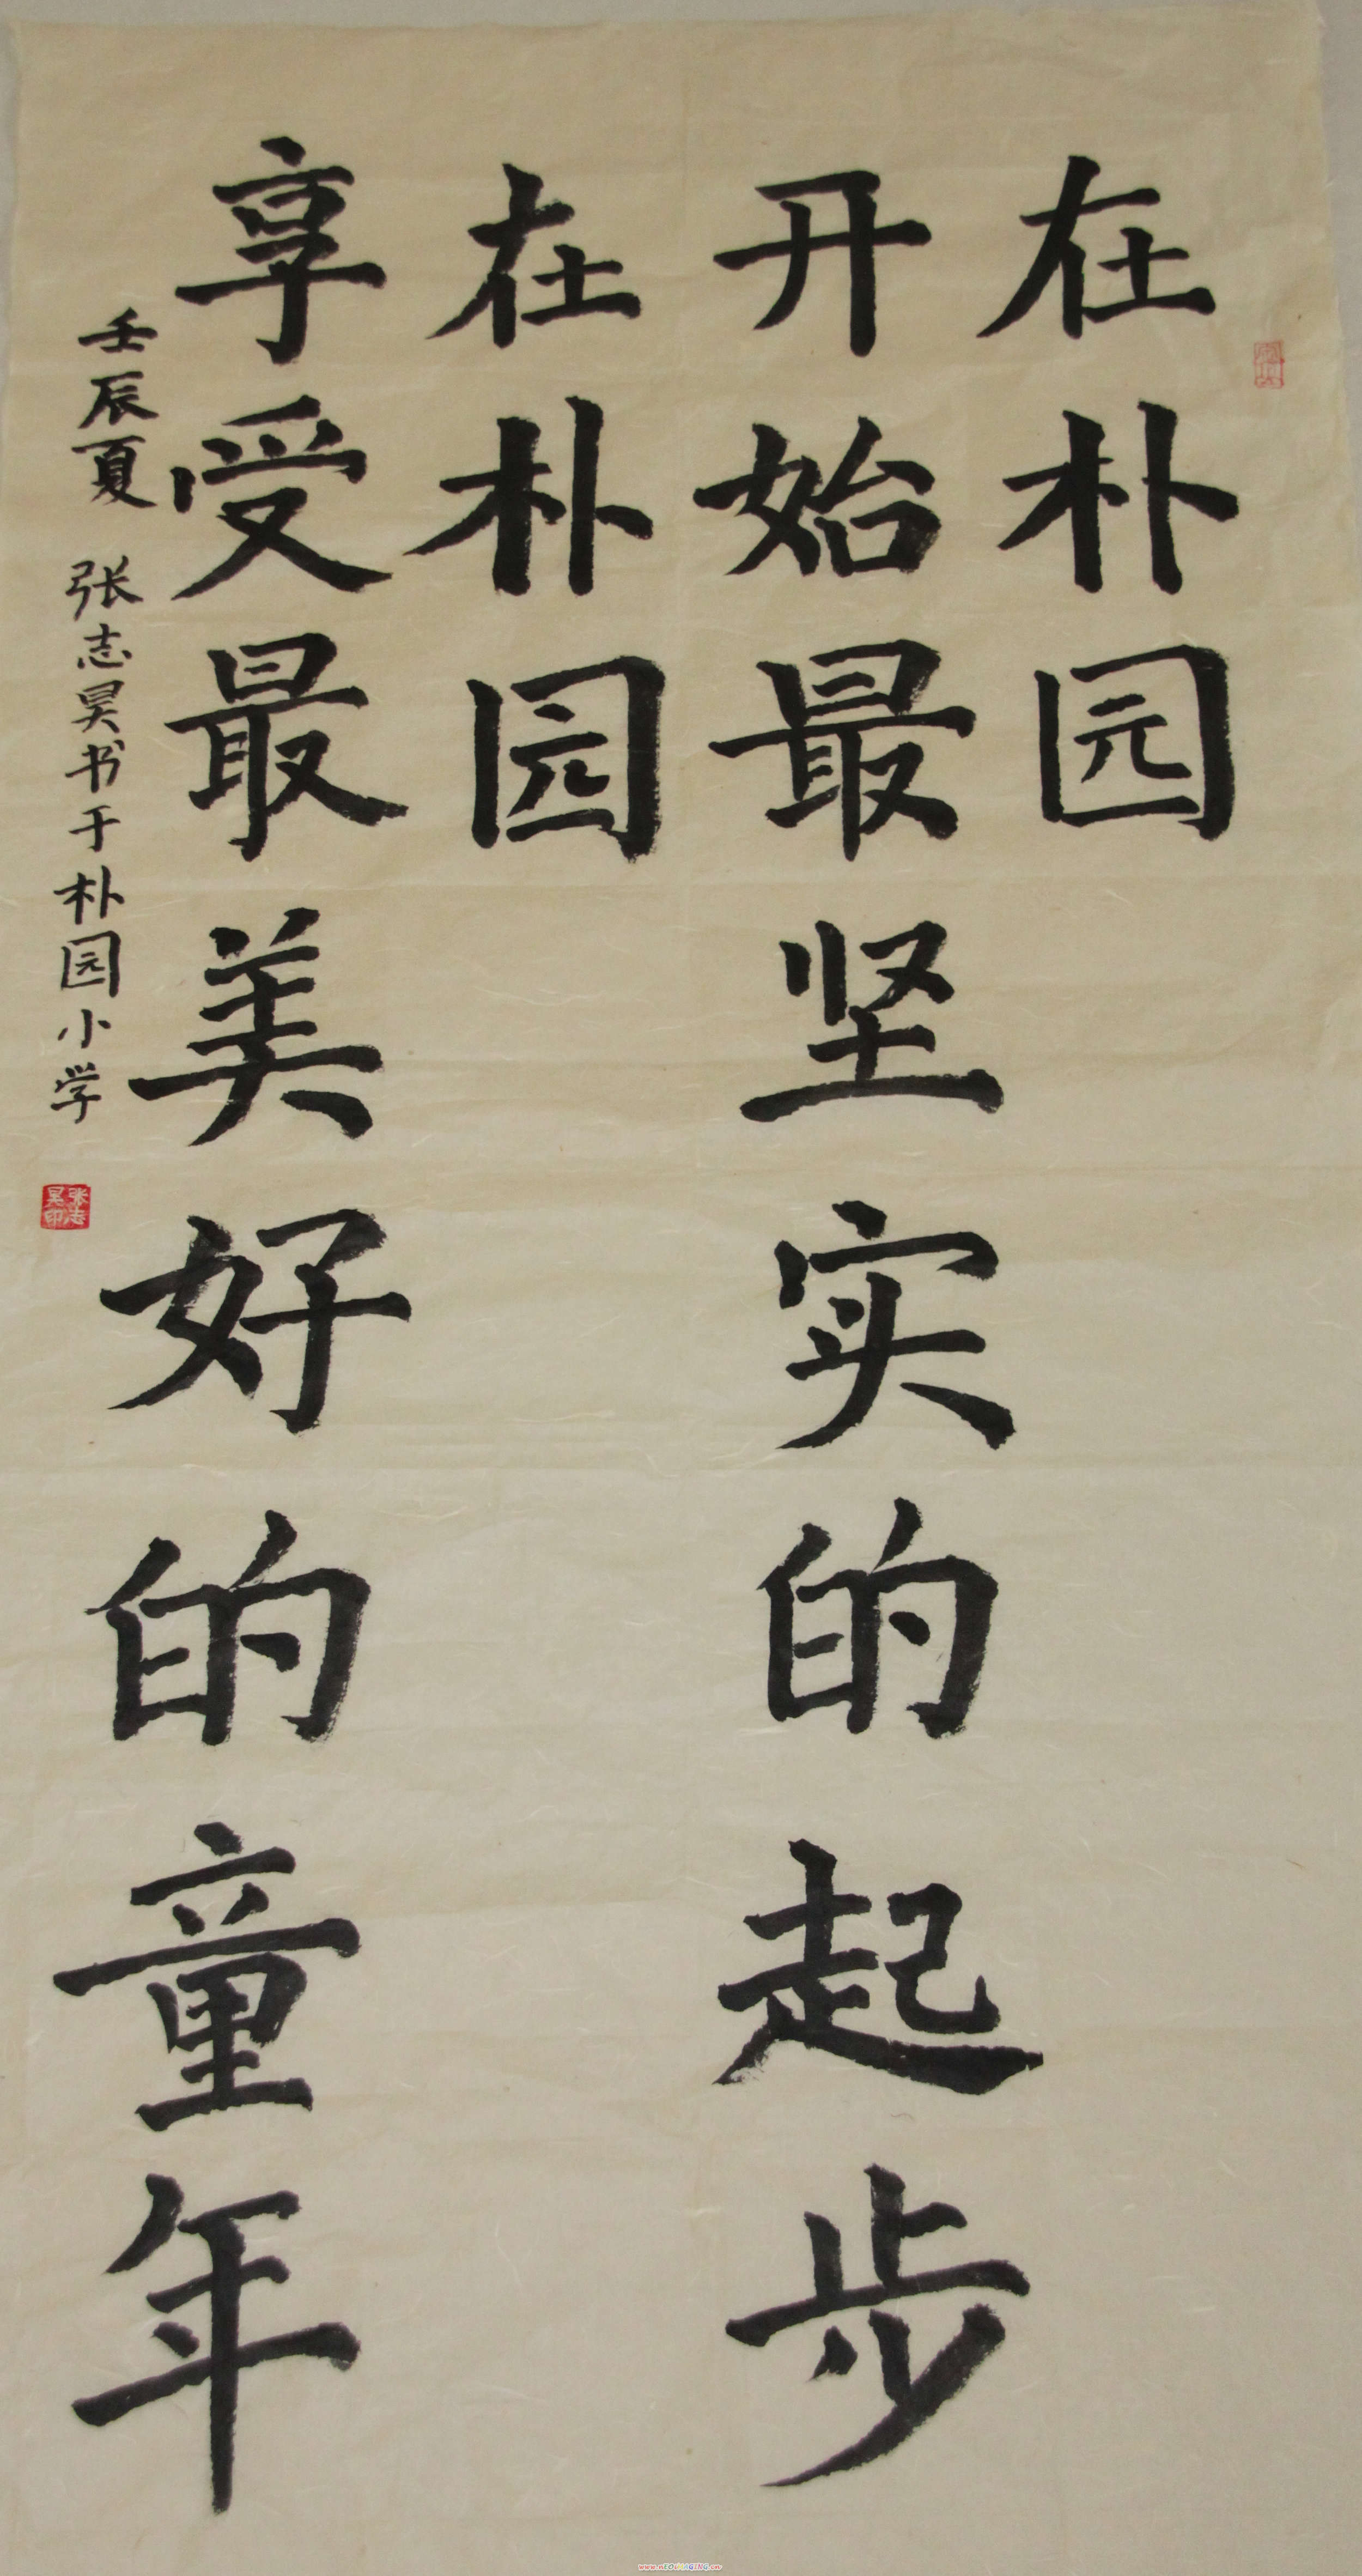 在朴园
开始最坚实的起步
在朴园
享受最美好的童年
壬辰夏 张志昊书于朴园小学
张志昊印